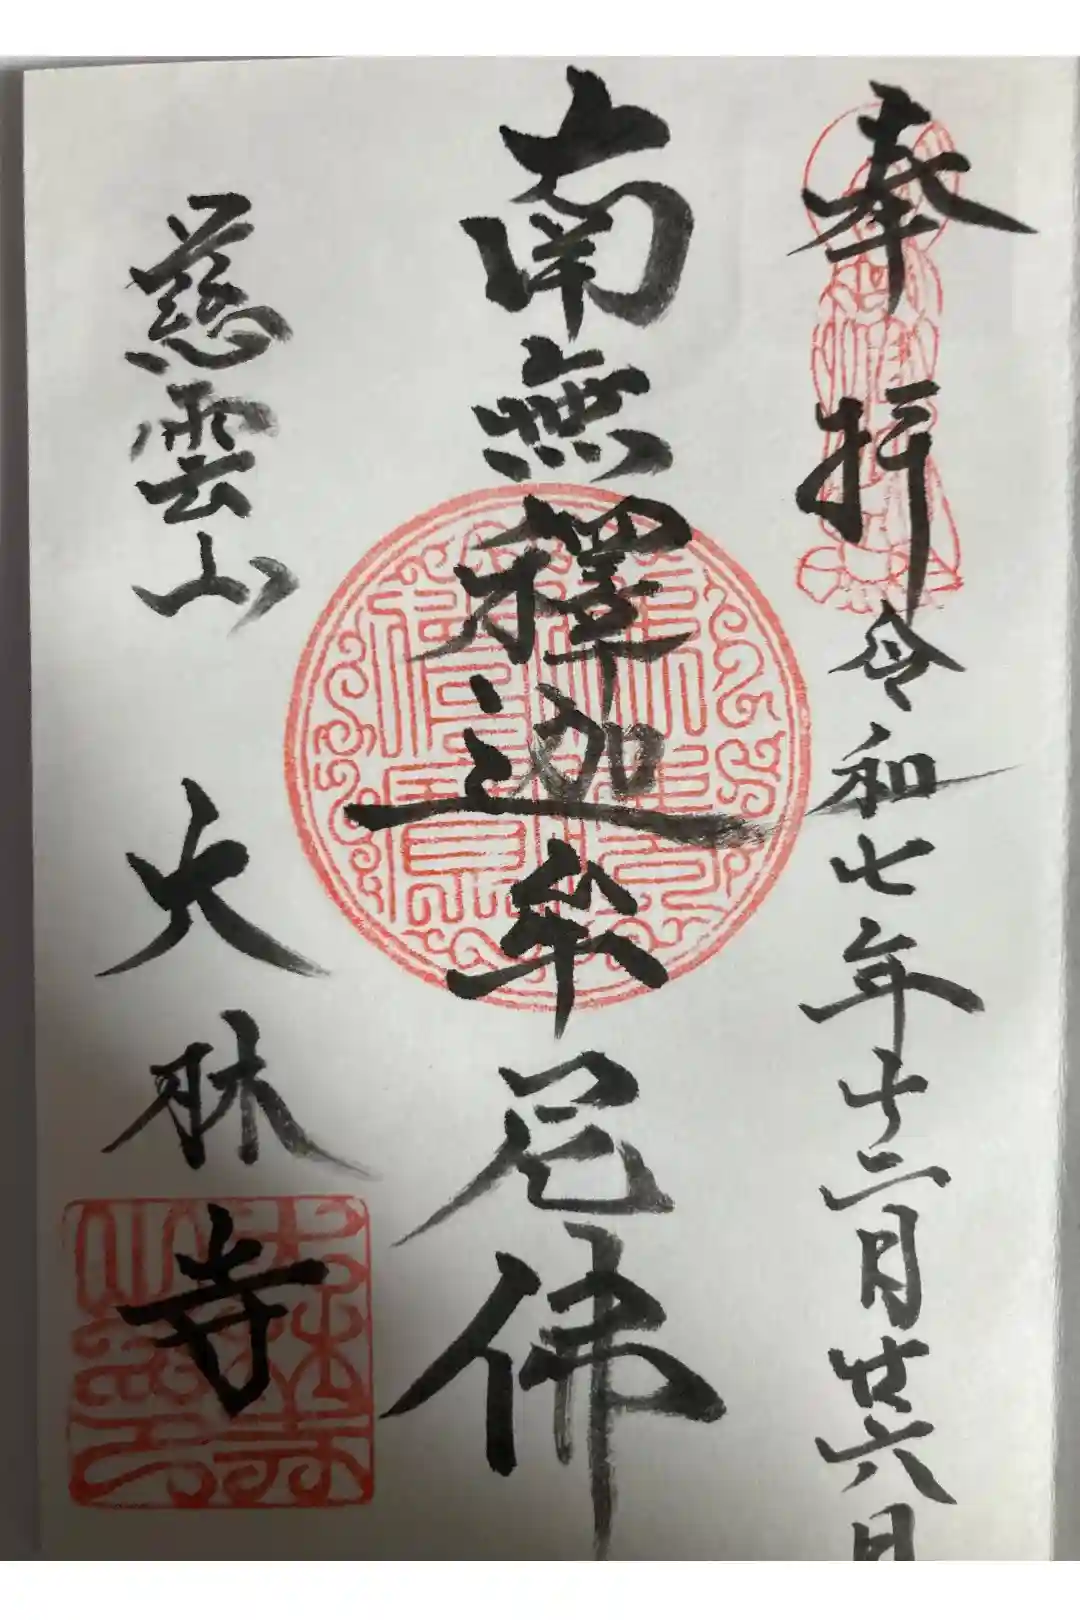 奉拝 令和七年十二月廿六日
南無釋迦牟尼佛
慈雲山 大林寺